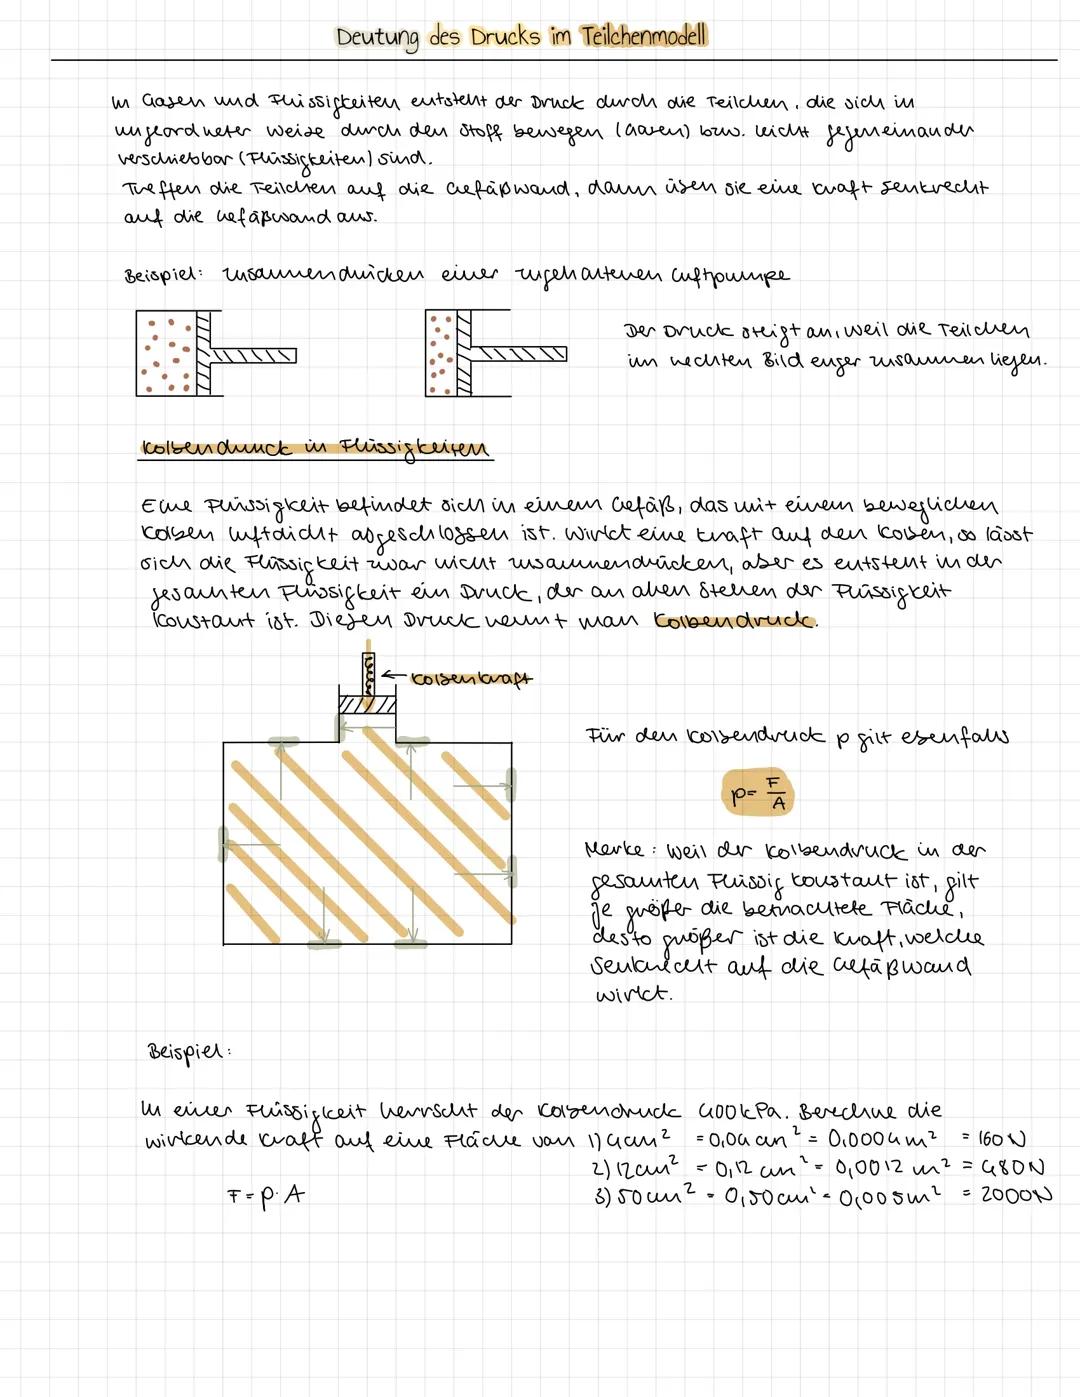 Deutung des Drucks im Teilchenmodell
In Gasen und Flüssigkeiten entsteht der Druck durch die Teilchen, die sich in
ungeordneter Weise durch den Stoff bewegen (Gasen) bzw. leicht gegeneinander
verschiebbar (Flüssigkeiten) sind.
Treffen die Teilchen auf die Gefäßwand, dann üben sie eine Kraft senkrecht
auf die Gefäßwand aus.
Beispiel: Zusammendrücken einer zugehaltenen Luftpumpe
Der Druck steigt an, weil die Teilchen
im rechten Bild enger zusammen liegen.
Kolbendruck in Flüssigkeiten
Eine Flüssigkeit befindet sich in einem Gefäß, das mit einem beweglichen
Kolben luftdicht abgeschlossen ist. Wirkt eine Kraft auf den Kolben, so lässt
sich die Flüssigkeit zwar nicht zusammendrücken, aber es entsteht in der
gesamten Flüssigkeit ein Druck, der an allen Stellen der Flüssigkeit
konstant ist. Diesen Druck nennt man Kolbendruck.
Kolbenkraft
Für den Kolbendruck p gilt ebenfalls
p = F/A
Merke: Weil der Kolbendruck in der
gesamten Flüssig konstant ist, gilt
je größer die betrachtete Fläche,
desto größer ist die Kraft, welche
senkrecht auf die Gefäßwand
wirkt.
Beispiel:
In einer Flüssigkeit herrscht der Kolbendruck 400kPa. Berechne die
wirkende Kraft auf eine Fläche von 1) 4cm² = 0,04 cm² = 0,0004 m² = 160 N
2) 12cm² = 0,12 cm² = 0,0012 m² = 480N
F = p · A 3) 50cm² = 0,50cm² = 0,005m² = 2000N